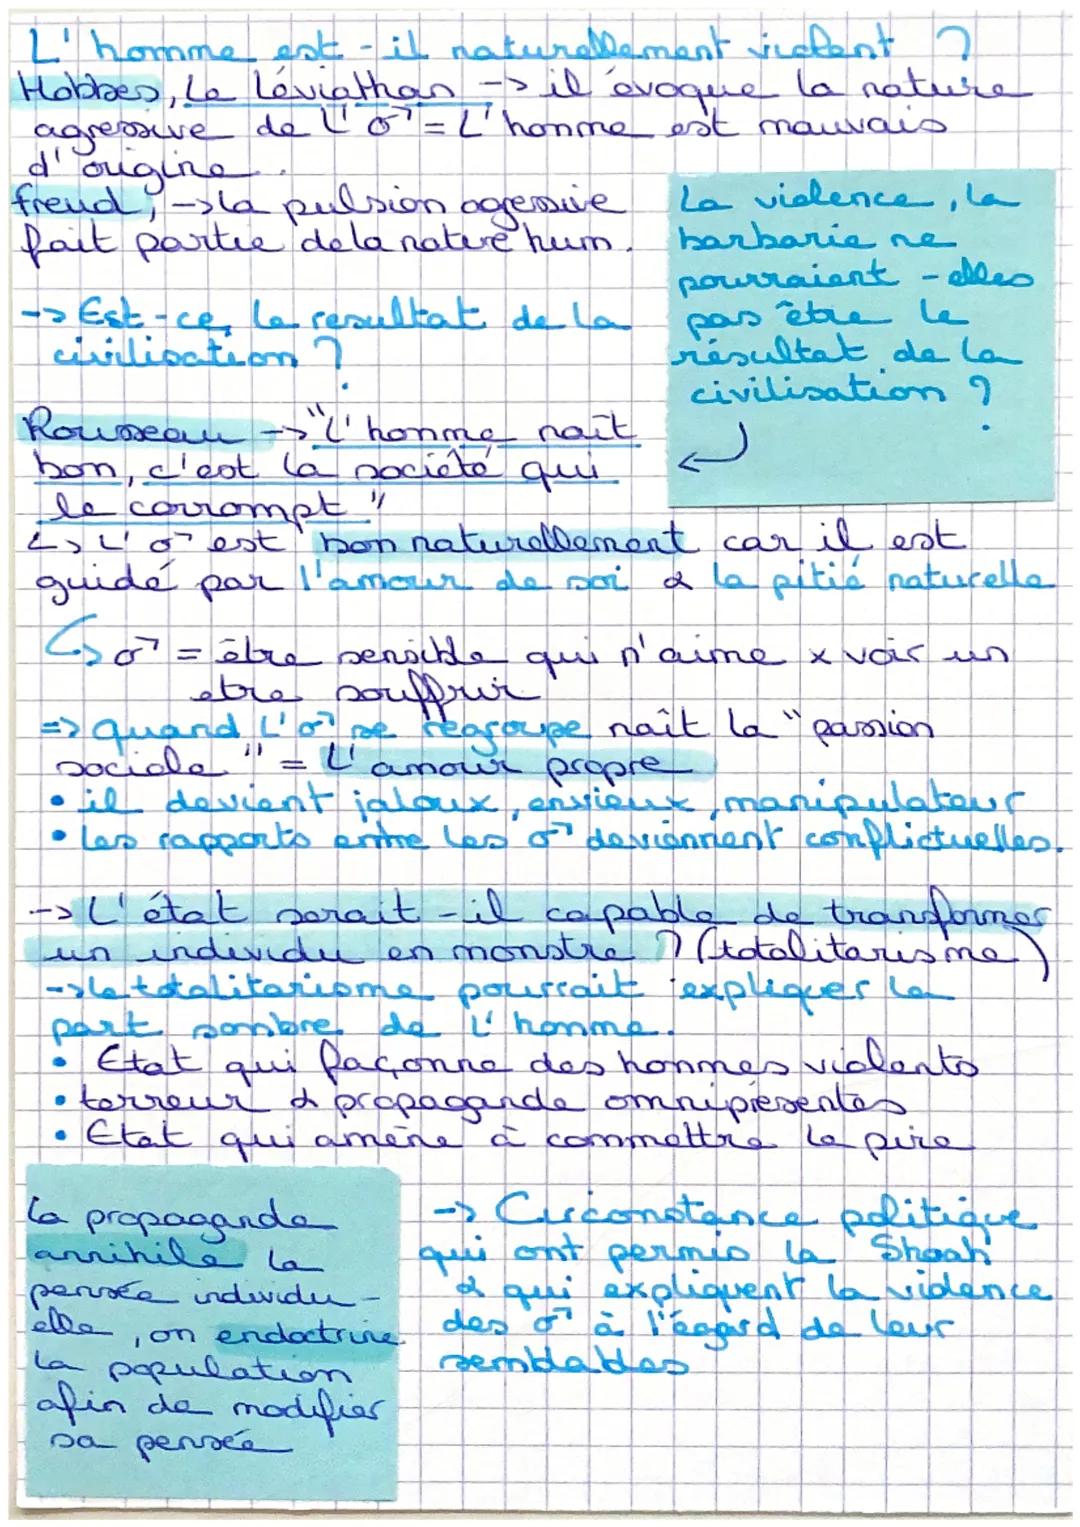 L'homme est-il naturellement violent ?
Hobbes, Le Léviathan -> il évoque la nature
agressive de l'♂ = L'homme est mauvais
d'origine.
freud, -> la pulsion agressive
fait partie de la nature hum.
La violence, la
barbarie ne
pourraient-elles
pas être le
résultat de la
civilisation ?
-> Est-ce, le résultat de la
civilisation ?
Rousseau -> "L'homme naît
bon, c'est la société qui
le corrompt"
↳ L'♂ est bon naturellement car il est
guidé par l'amour de soi & la pitié naturelle
↳ ♂ = être sensible qui n'aime x voir un
etre souffrir
=> quand L'♂ se regroupe naît la "passion
sociale" = L'amour propre
• il devient jaloux, envieux, manipulateur
• les rapports entre les ♂ deviennent conflictuelles.
-> L'état serait-il capable de transformer
un individu en monstre ? (totalitarisme)
-> le totalitarisme pourrait expliquer la
part sombre de l'homme.
• Etat qui façonne des hommes violents
• terreur & propagande omniprésentes
• Etat qui amène à commettre le pire
La propagande
annihile la
pensée individu-
elle, on endoctrine
la population
afin de modifier
sa pensée
-> Circonstance politique
qui ont permis la Shoah
& qui expliquent la violence
des ♂ à l'égard de leur
semblables